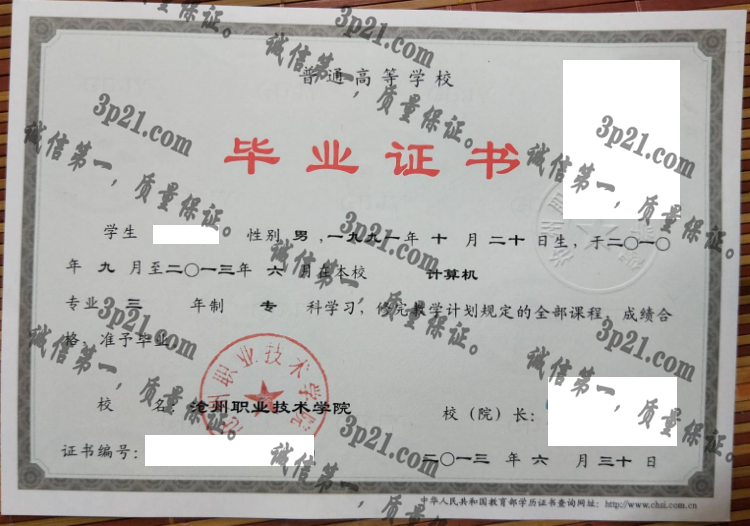 普通高等学校
毕业证书
学生 性别 男 ，一九九一年 十 月 二十 日生，于二〇一〇
年 九 月至二〇一三年 六 月在本校 计算机
专业 三 年制 专 科学习，修完教学计划规定的全部课程，成绩合
格，准予毕业。
校 名：沧州职业技术学院
校（院）长：
证书编号：
二〇一三 年 六 月 三十 日
中华人民共和国教育部学历证书查询网址：http://www.chsi.com.cn
沧州职业技术学院
3p21.com
诚信第一，质量保证。
3p21.com
诚信第一，质量保证。
3p21.com
诚信第一，质量保证。
3p21.com
诚信第一，质量保证。
3p21.com
诚信第一，质量保证。
3p21.com
诚信第一，质量保证。
3p21.com
诚信第一，质量保证。
3p21.com
诚信第一，质量保证。
质量保证。